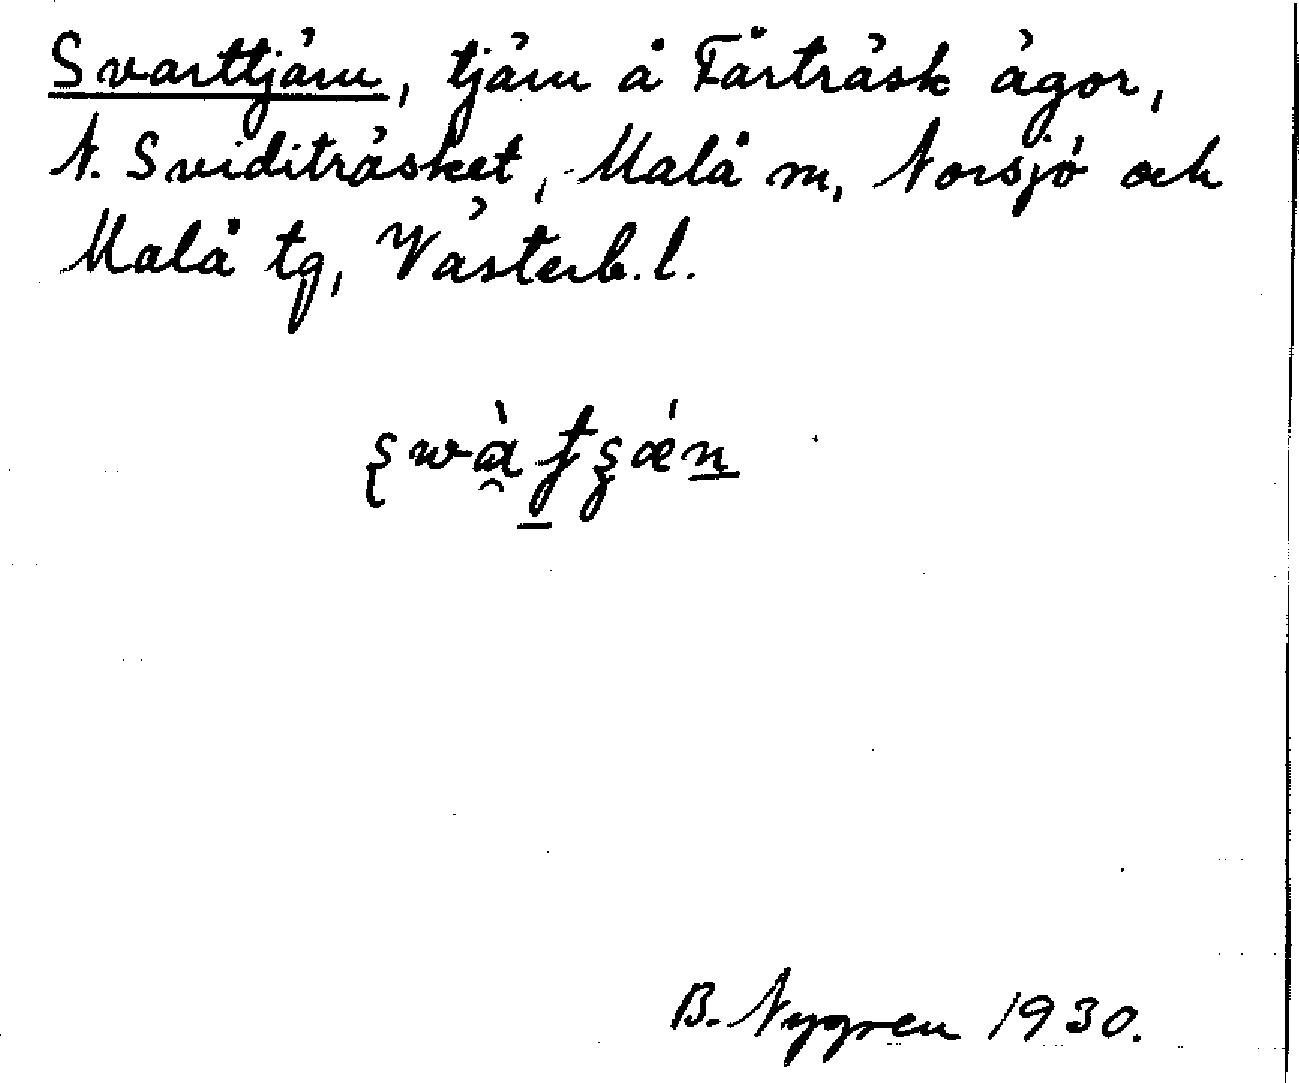 Svarttjärn, tjärn å Fårträsk ägor,
N. Sviditräsket, Malå sn, Norsjö och
Malå tg, Västerb. l.
B. Nygren 1930.